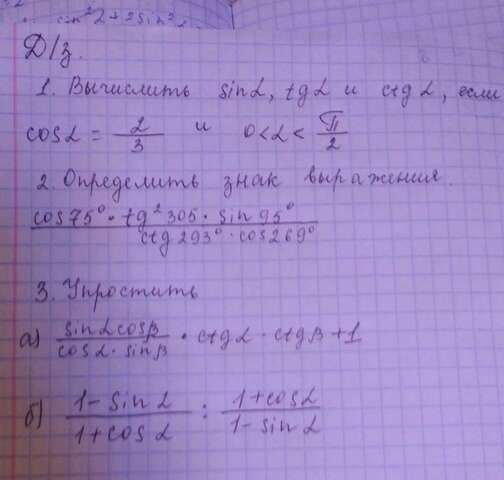 sin²α + 2sin²α
Д/з.
1. Вычислить sinα, tgα и ctgα, если
cosα = 2/3 и 0<α< π/2
2. Определить знак выражения.
cos75°·tg²305·sin95° / ctg293°·cos269°
3. Упростить
а) sinαcosβ / cosα·sinβ · ctgα·ctgβ+1
б) 1-sinα / 1+cosα : 1+cosα / 1-sinα